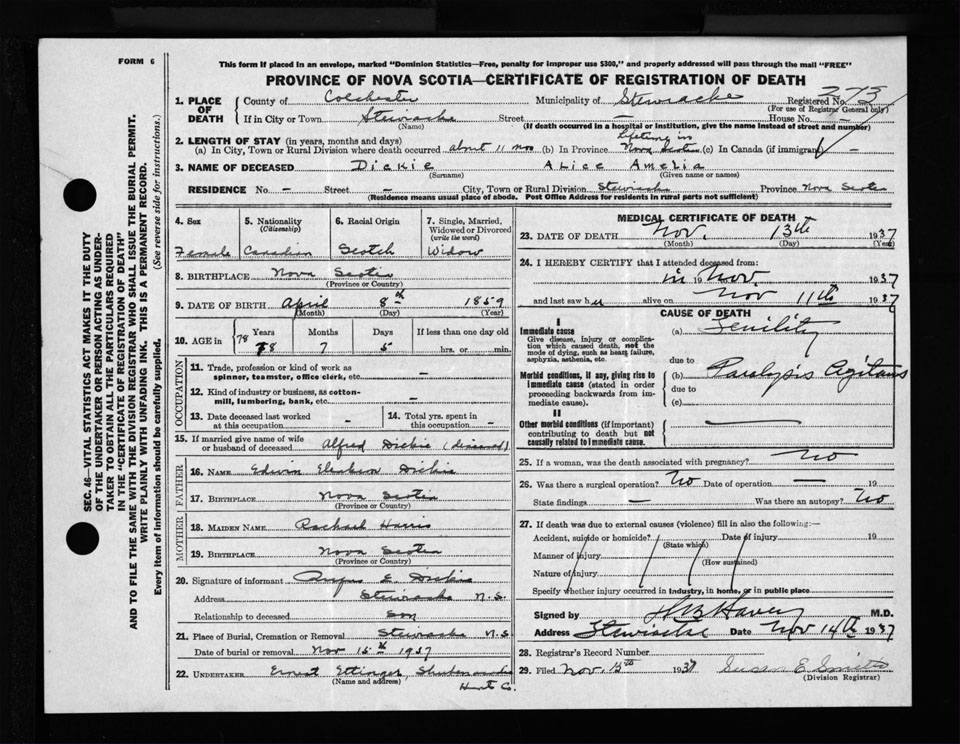 FORM 6
This form if placed in an envelope, marked "Dominion Statistics—Free, penalty for improper use $300," and properly addressed will pass through the mail "FREE"
PROVINCE OF NOVA SCOTIA—CERTIFICATE OF REGISTRATION OF DEATH
1. PLACE OF DEATH County of Colchester Municipality of Stewiacke Registered No. 273
(For use of Registrar General only)
If in City or Town Stewiacke Street — House No. —
(Name) (If death occurred in a hospital or institution, give the name instead of street and number)
2. LENGTH OF STAY (in years, months and days) lifetime in
(a) In City, Town or Rural Division where death occurred about 11 mos (b) In Province Nova Scotia (c) In Canada (if immigrant) —
3. NAME OF DECEASED Dickie Alice Amelia
(Surname) (Given name or names)
RESIDENCE No. – Street – City, Town or Rural Division Stewiacke Province Nova Scotia
(Residence means usual place of abode. Post Office Address for residents in rural parts not sufficient)
4. Sex 5. Nationality (Citizenship) 6. Racial Origin 7. Single, Married, Widowed or Divorced (write the word)
Female Canadian Scotch Widow
8. BIRTHPLACE Nova Scotia
(Province or Country)
9. DATE OF BIRTH April 8th 1859
(Month) (Day) (Year)
10. AGE in Years Months Days If less than one day old
78 78 7 5 hrs. or min.
OCCUPATION
11. Trade, profession or kind of work as spinner, teamster, office clerk, etc. –
12. Kind of industry or business, as cotton-mill, lumbering, bank, etc. –
13. Date deceased last worked at this occupation - 14. Total yrs. spent in this occupation -
15. If married give name of wife or husband of deceased Alfred Dickie (deceased)
FATHER
16. NAME Edwin Dickie
17. BIRTHPLACE Nova Scotia
(Province or Country)
MOTHER
18. MAIDEN NAME Rachael Harris
19. BIRTHPLACE Nova Scotia
(Province or Country)
20. Signature of informant Rufus E. Dickie
Address Stewiacke N.S.
Relationship to deceased Son
21. Place of Burial, Cremation or Removal Stewiacke N.S.
Date of burial or removal Nov 15th 1937
22. UNDERTAKER Ernest Ettinger Shubenacadie
(Name and address) Hants Co.
MEDICAL CERTIFICATE OF DEATH
23. DATE OF DEATH Nov. 13th 1937
(Month) (Day) (Year)
24. I HEREBY CERTIFY that I attended deceased from:
in 19 Nov. 1937
and last saw her alive on Nov 11th 1937
CAUSE OF DEATH
I
Immediate cause (a) Senility
Give disease, injury or complication which caused death, not the mode of dying, such as heart failure, asphyxia, asthenia, etc.
due to
Morbid conditions, if any, giving rise to immediate cause (stated in order proceeding backwards from immediate cause). (b) Paralysis Agitans
due to
(c)
II
Other morbid conditions (if important) contributing to death but not causally related to immediate cause. —
25. If a woman, was the death associated with pregnancy? No
26. Was there a surgical operation? No Date of operation — 19
State findings — Was there an autopsy? No
27. If death was due to external causes (violence) fill in also the following:—
Accident, suicide or homicide? Date of injury 19
(State which)
Manner of injury
(How sustained)
Nature of injury
Specify whether injury occurred in Industry, in home, or in public place
Signed by M.D.
Address Stewiacke Date Nov 14th 1937
28. Registrar's Record Number
29. Filed Nov 15th 1937 Susan E. Smith
(Division Registrar)
SEC. 46—VITAL STATISTICS ACT MAKES IT THE DUTY
OF THE UNDERTAKER OR PERSON ACTING AS UNDER-
TAKER TO OBTAIN ALL THE PARTICULARS REQUIRED
IN THE "CERTIFICATE OF REGISTRATION OF DEATH"
AND TO FILE THE SAME WITH THE DIVISION REGISTRAR WHO SHALL ISSUE THE BURIAL PERMIT.
WRITE PLAINLY WITH UNFADING INK. THIS IS A PERMANENT RECORD.
Every item of information should be carefully supplied. (See reverse side for instructions.)